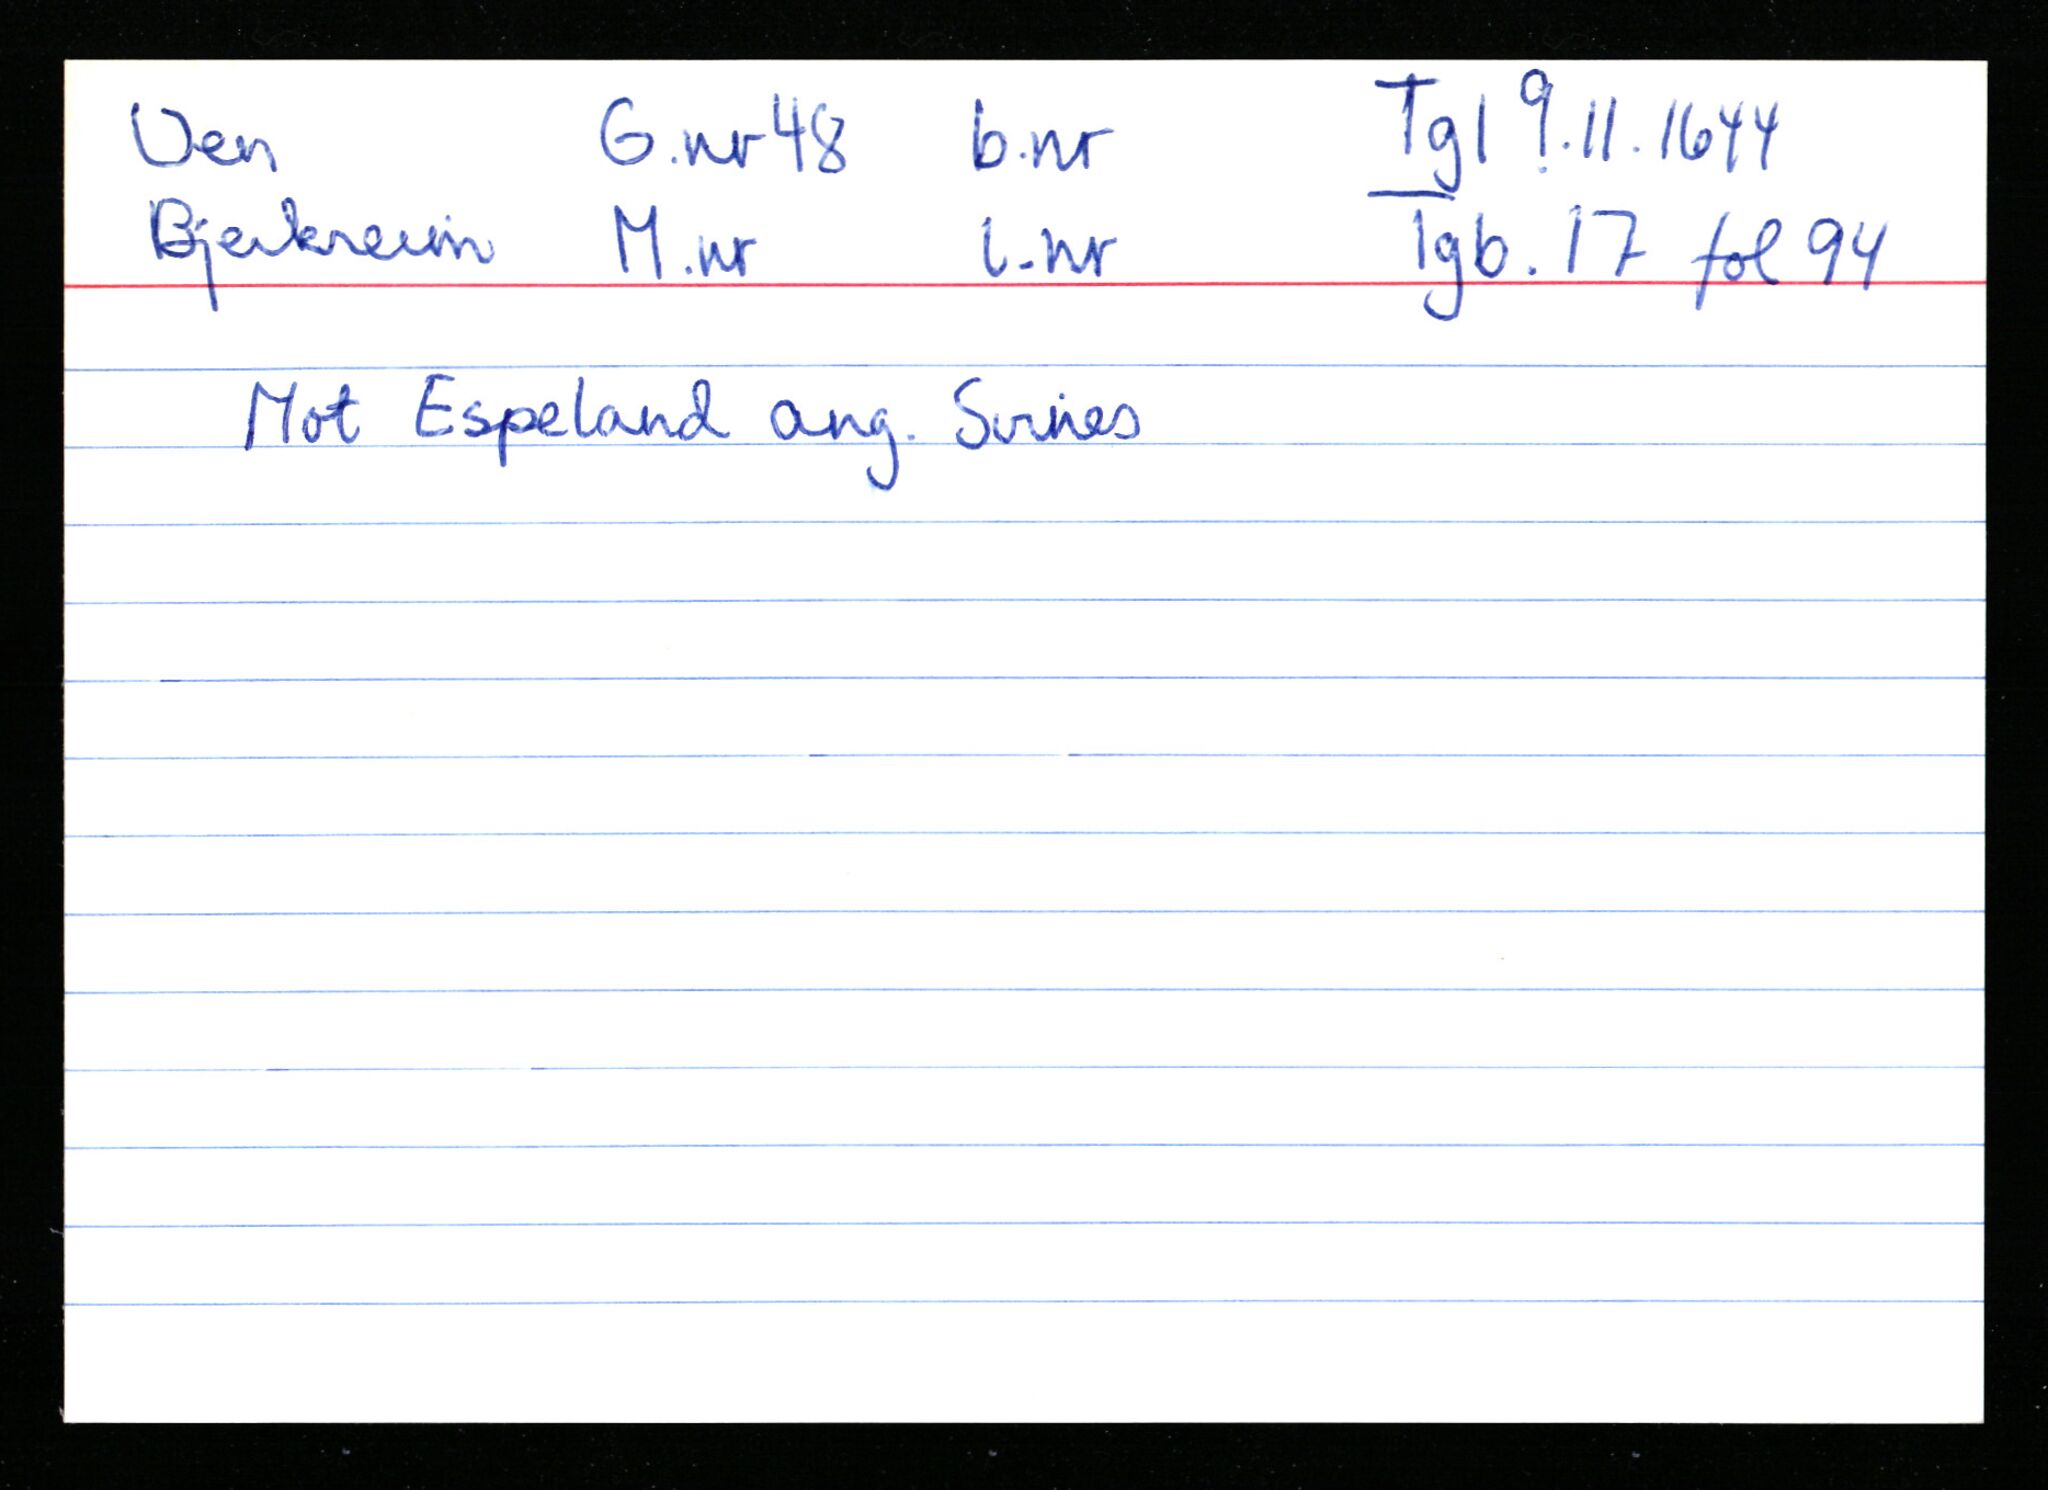 Uen G.nr 48 b.nr Tgl 9.11.1644
Bjerkreim M.nr l.nr Tgb. 17 fol 94
Mot Espeland ang.